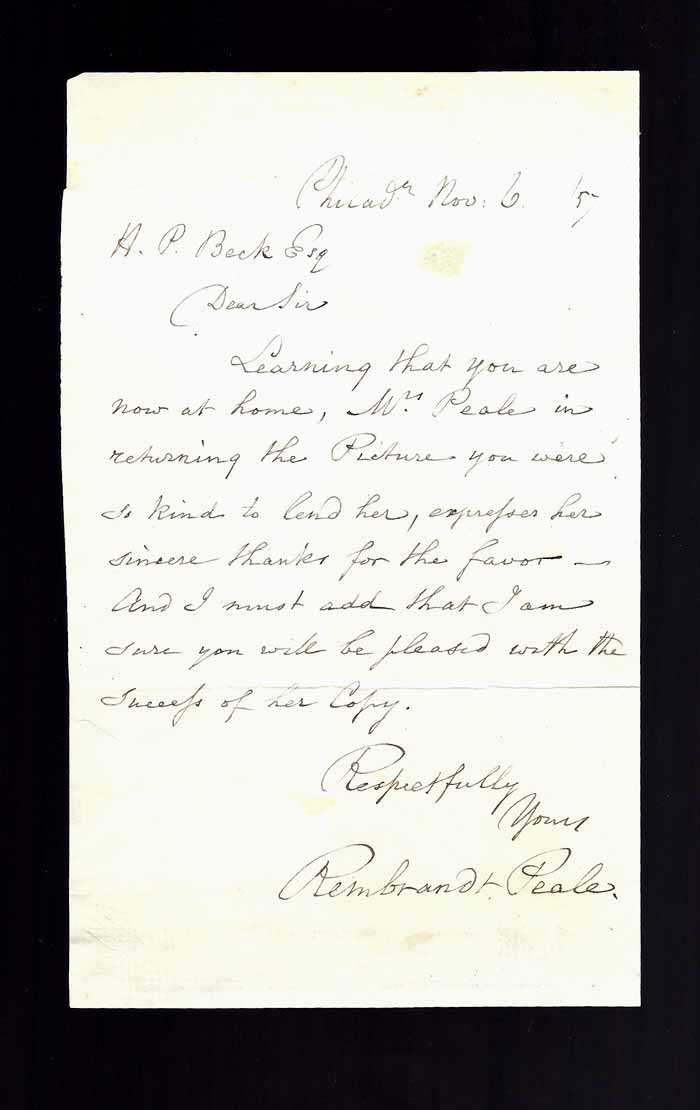 Philadᵃ Nov: 6. '57
H. P. Beck Esq
Dear Sir
Learning that you are
now at home, Mʳˢ Peale in
returning the Picture you were
so kind to lend her, expreſses her
sincere thanks for the favor —
And I must add that I am
sure you will be pleased with the
Succeſs of her Copy.
Respectfully
Yours
Rembrandt Peale.